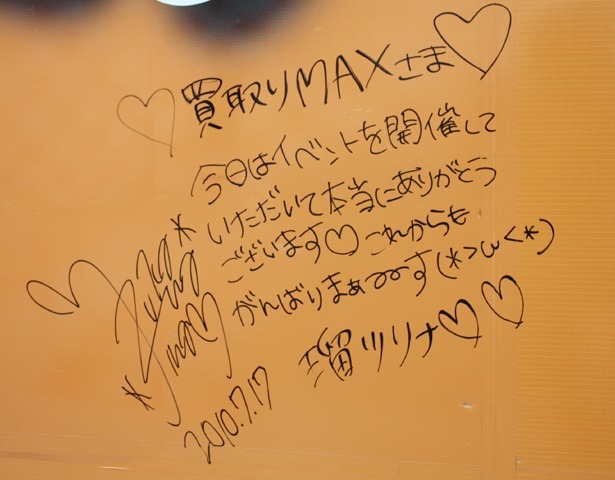 ♡買取りMAXさま♡
今日はイベントを開催して
いただいて本当にありがとう
ございます♡これからも
がんばりまぁーす(*>ω<*)
瑠ツリナ♡♡
2010.7.17